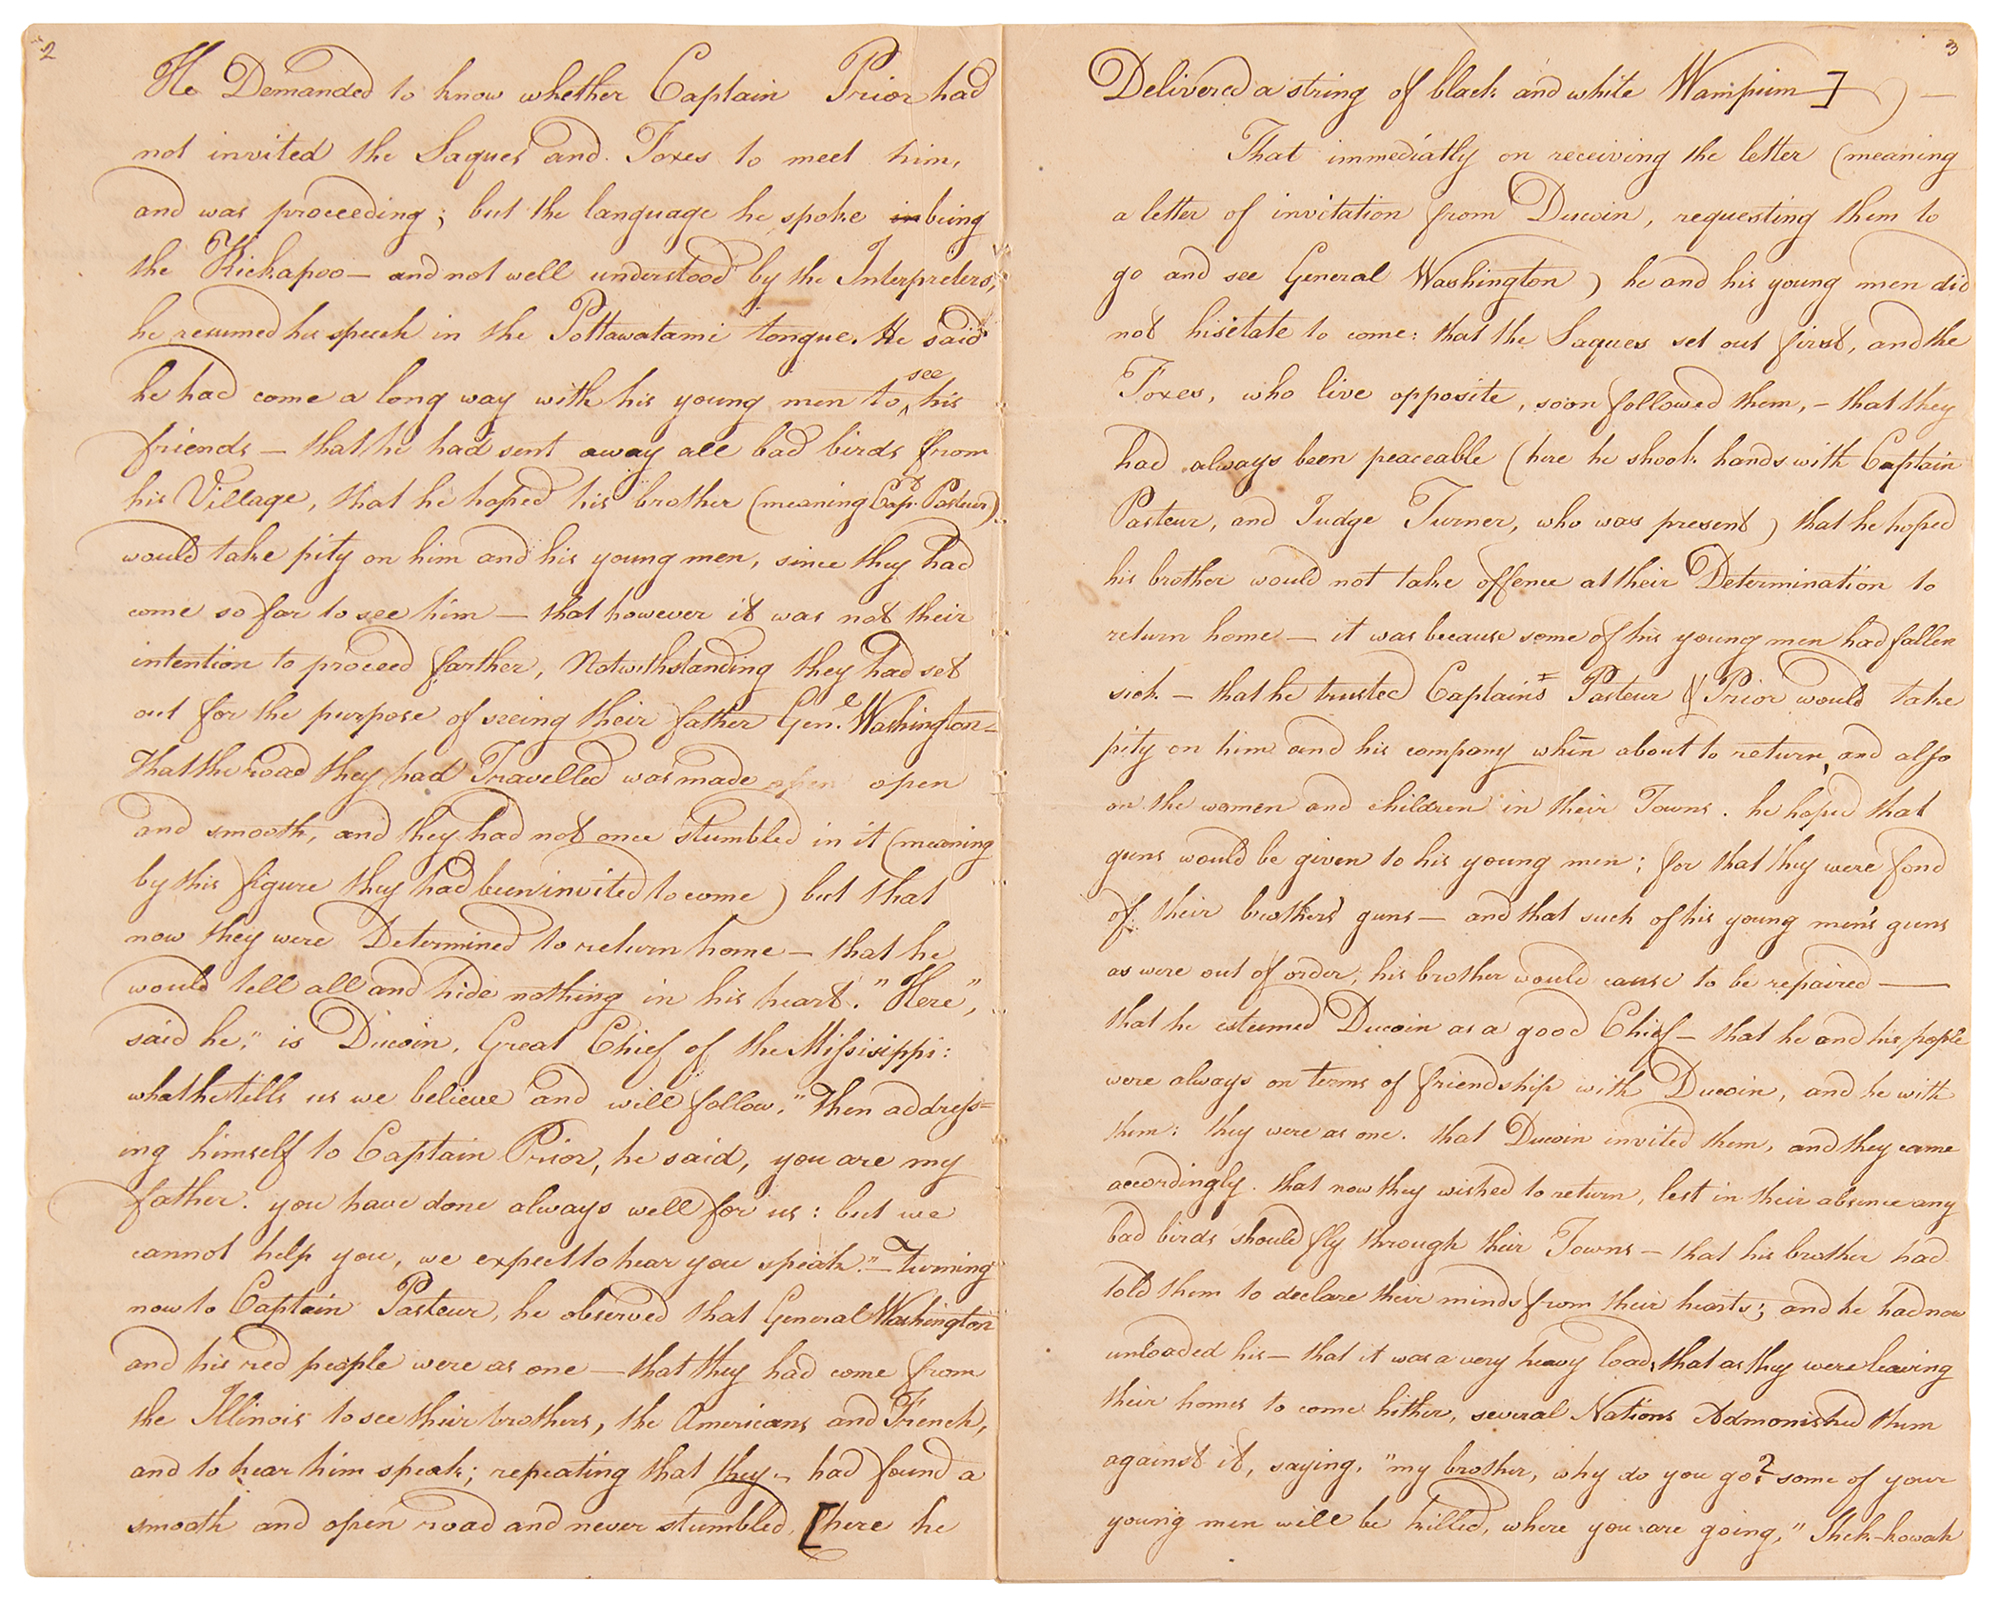 2
He Demanded to know whether Captain Prior had
not invited the Saques and Foxes to meet him,
and was proceeding; but the language he spoke in being
the Kickapoo — and not well understood by the Interpreters,
he resumed his speech in the Pottawatami tongue. He said
he had come a long way with his young men to see his
friends — that he had sent away all bad birds from
his Village, that he hoped his brother (meaning Capt. Pasteur)
would take pity on him and his young men, since they had
come so far to see him — that however it was not their
intention to proceed farther, Notwithstanding they had set
out for the purpose of seeing their father Genl. Washington —
That the road they had Travelled was made open open
and smooth, and they had not once stumbled in it (meaning
by this figure they had been invited to come) but that
now they were Determined to return home — that he
would tell all and hide nothing in his heart. "Here",
said he, "is Ducoin, Great Chief of the Missisippi:
what he tells us we believe and will follow." Then address=
ing himself to Captain Prior, he said, you are my
father. you have done always well for us: but we
cannot help you, we expect to hear you speak." — Turning
now to Captain Pasteur, he observed that General Washington
and his red people were as one — that they had come from
the Illinois to see their brothers, the Americans and French,
and to hear him speak; repeating that they had found a
smooth and open road and never stumbled. [here he
3
Delivered a string of black and white Wampum] ) —
That immediatly on receiving the letter (meaning
a letter of invitation from Ducoin, requesting them to
go and see General Washington) he and his young men did
not hisetate to come: that the Saques set out first, and the
Foxes, who live opposite, soon followed them, — that they
had always been peaceable (here he shook hands with Captain
Pasteur, and Judge Turner, who was present) that he hoped
his brother would not take offence at their Determination to
return home — it was because some of his young men had fallen
sick — that he trusted Captains Pasteur & Prior would take
pity on him and his company when about to return, and also
on the women and children in their Towns. he hoped that
guns would be given to his young men; for that they were fond
of their brothers' guns — and that such of his young men's guns
as were out of order, his brother would cause to be repaired —
that he esteemed Ducoin as a good Chief — that he and his people
were always on terms of friendship with Ducoin, and he with
them: they were as one. that Ducoin invited them, and they came
accordingly. that now they wished to return, lest in their absence any
bad birds should fly through their Towns — that his brother had
told them to declare their minds from their hearts; and he had now
unloaded his — that it was a very heavy load, that as they were leaving
their homes to come hither, several Nations Admonished them
against it, saying, "my brother, why do you go? some of your
young men will be killed, where you are going," Shek-kowah